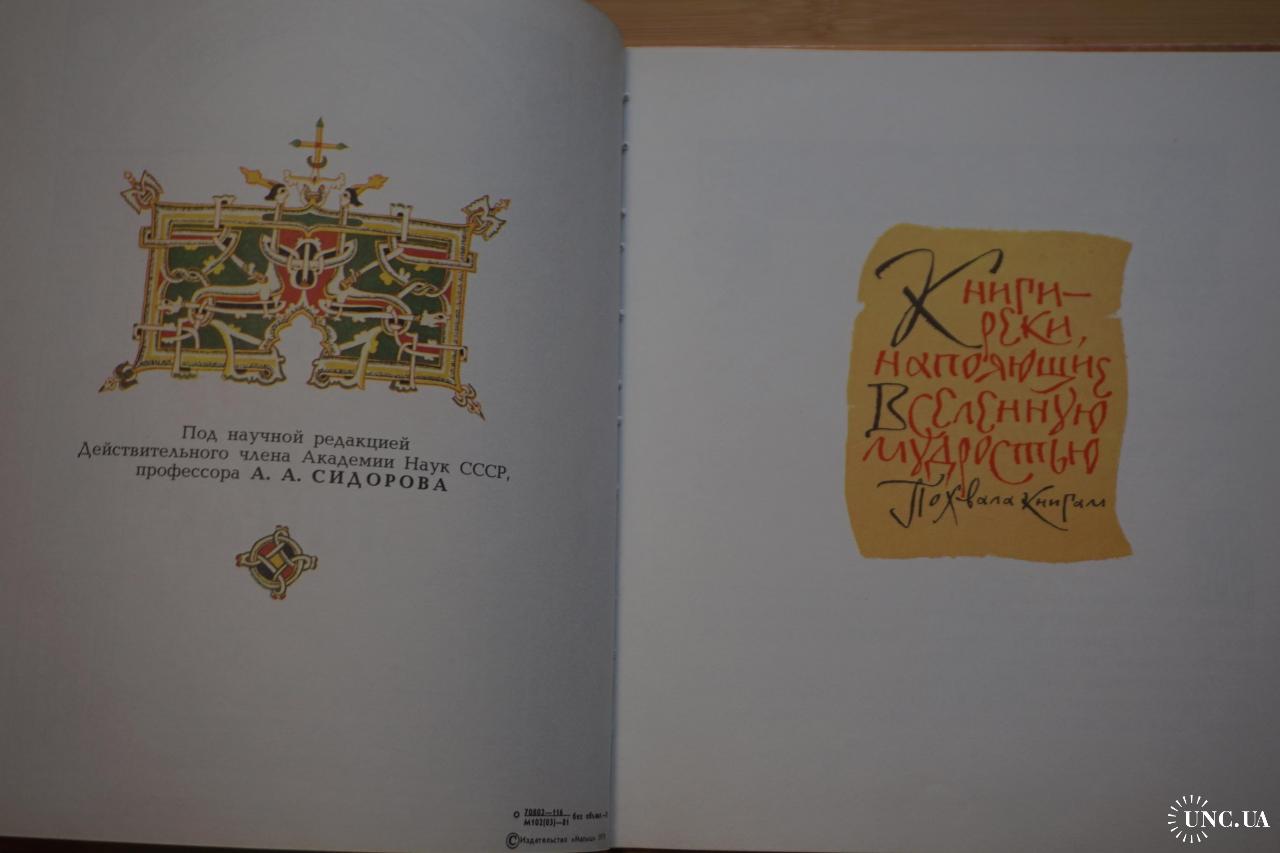 Под научной редакцией
Действительного члена Академии Наук СССР,
профессора А. А. СИДОРОВА
О 70802—116
М102(03)—81
без объявл.
© Издательство «Малыш»
Книги—
реки,
напояющие
Вселенную
мудростью
Похвала книгам
UNC.UA